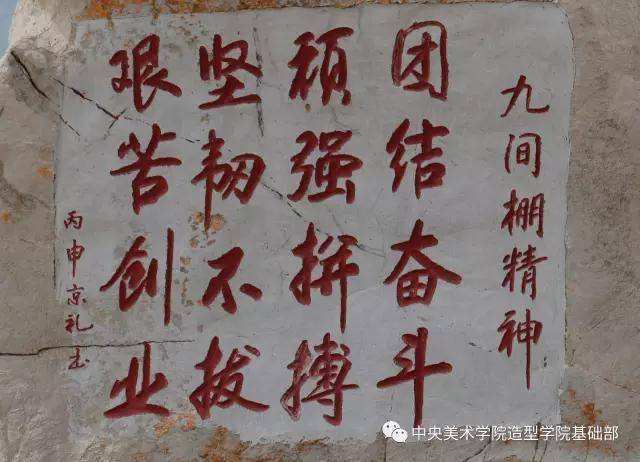 九间棚精神
团结奋斗
顽强拼搏
坚韧不拔
艰苦创业
丙申京礼书
中央美术学院造型学院基础部